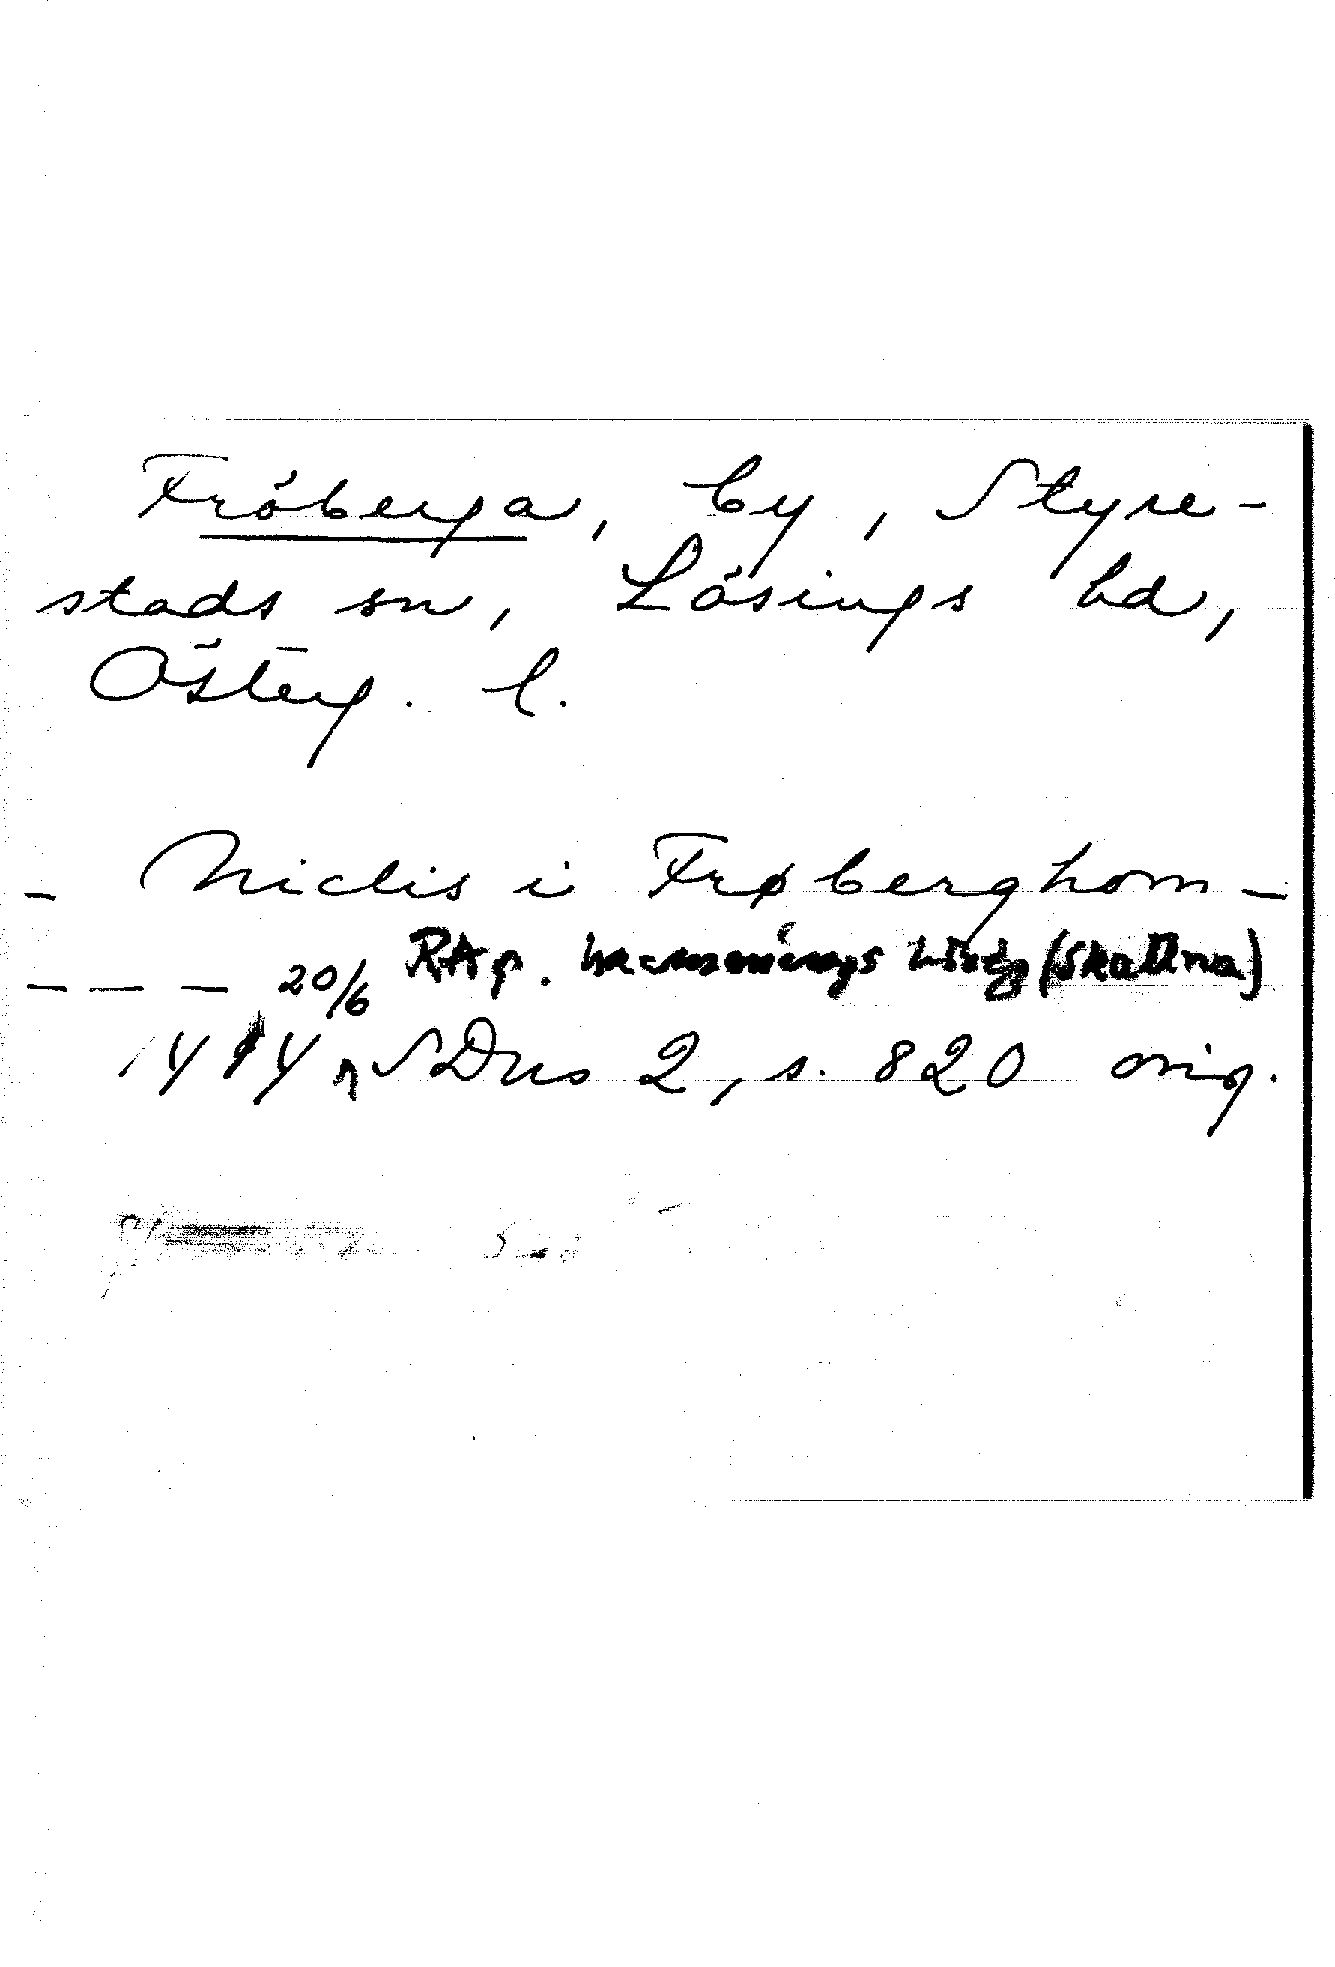 Fröberga, by, Styre-
stads sn, Lösings hd,
Österg. l.
- Niclis i Frøberghom -
- - - 20/6 RAp. hæmmings (Skallna)
1414 SDns 2, s. 820 orig.